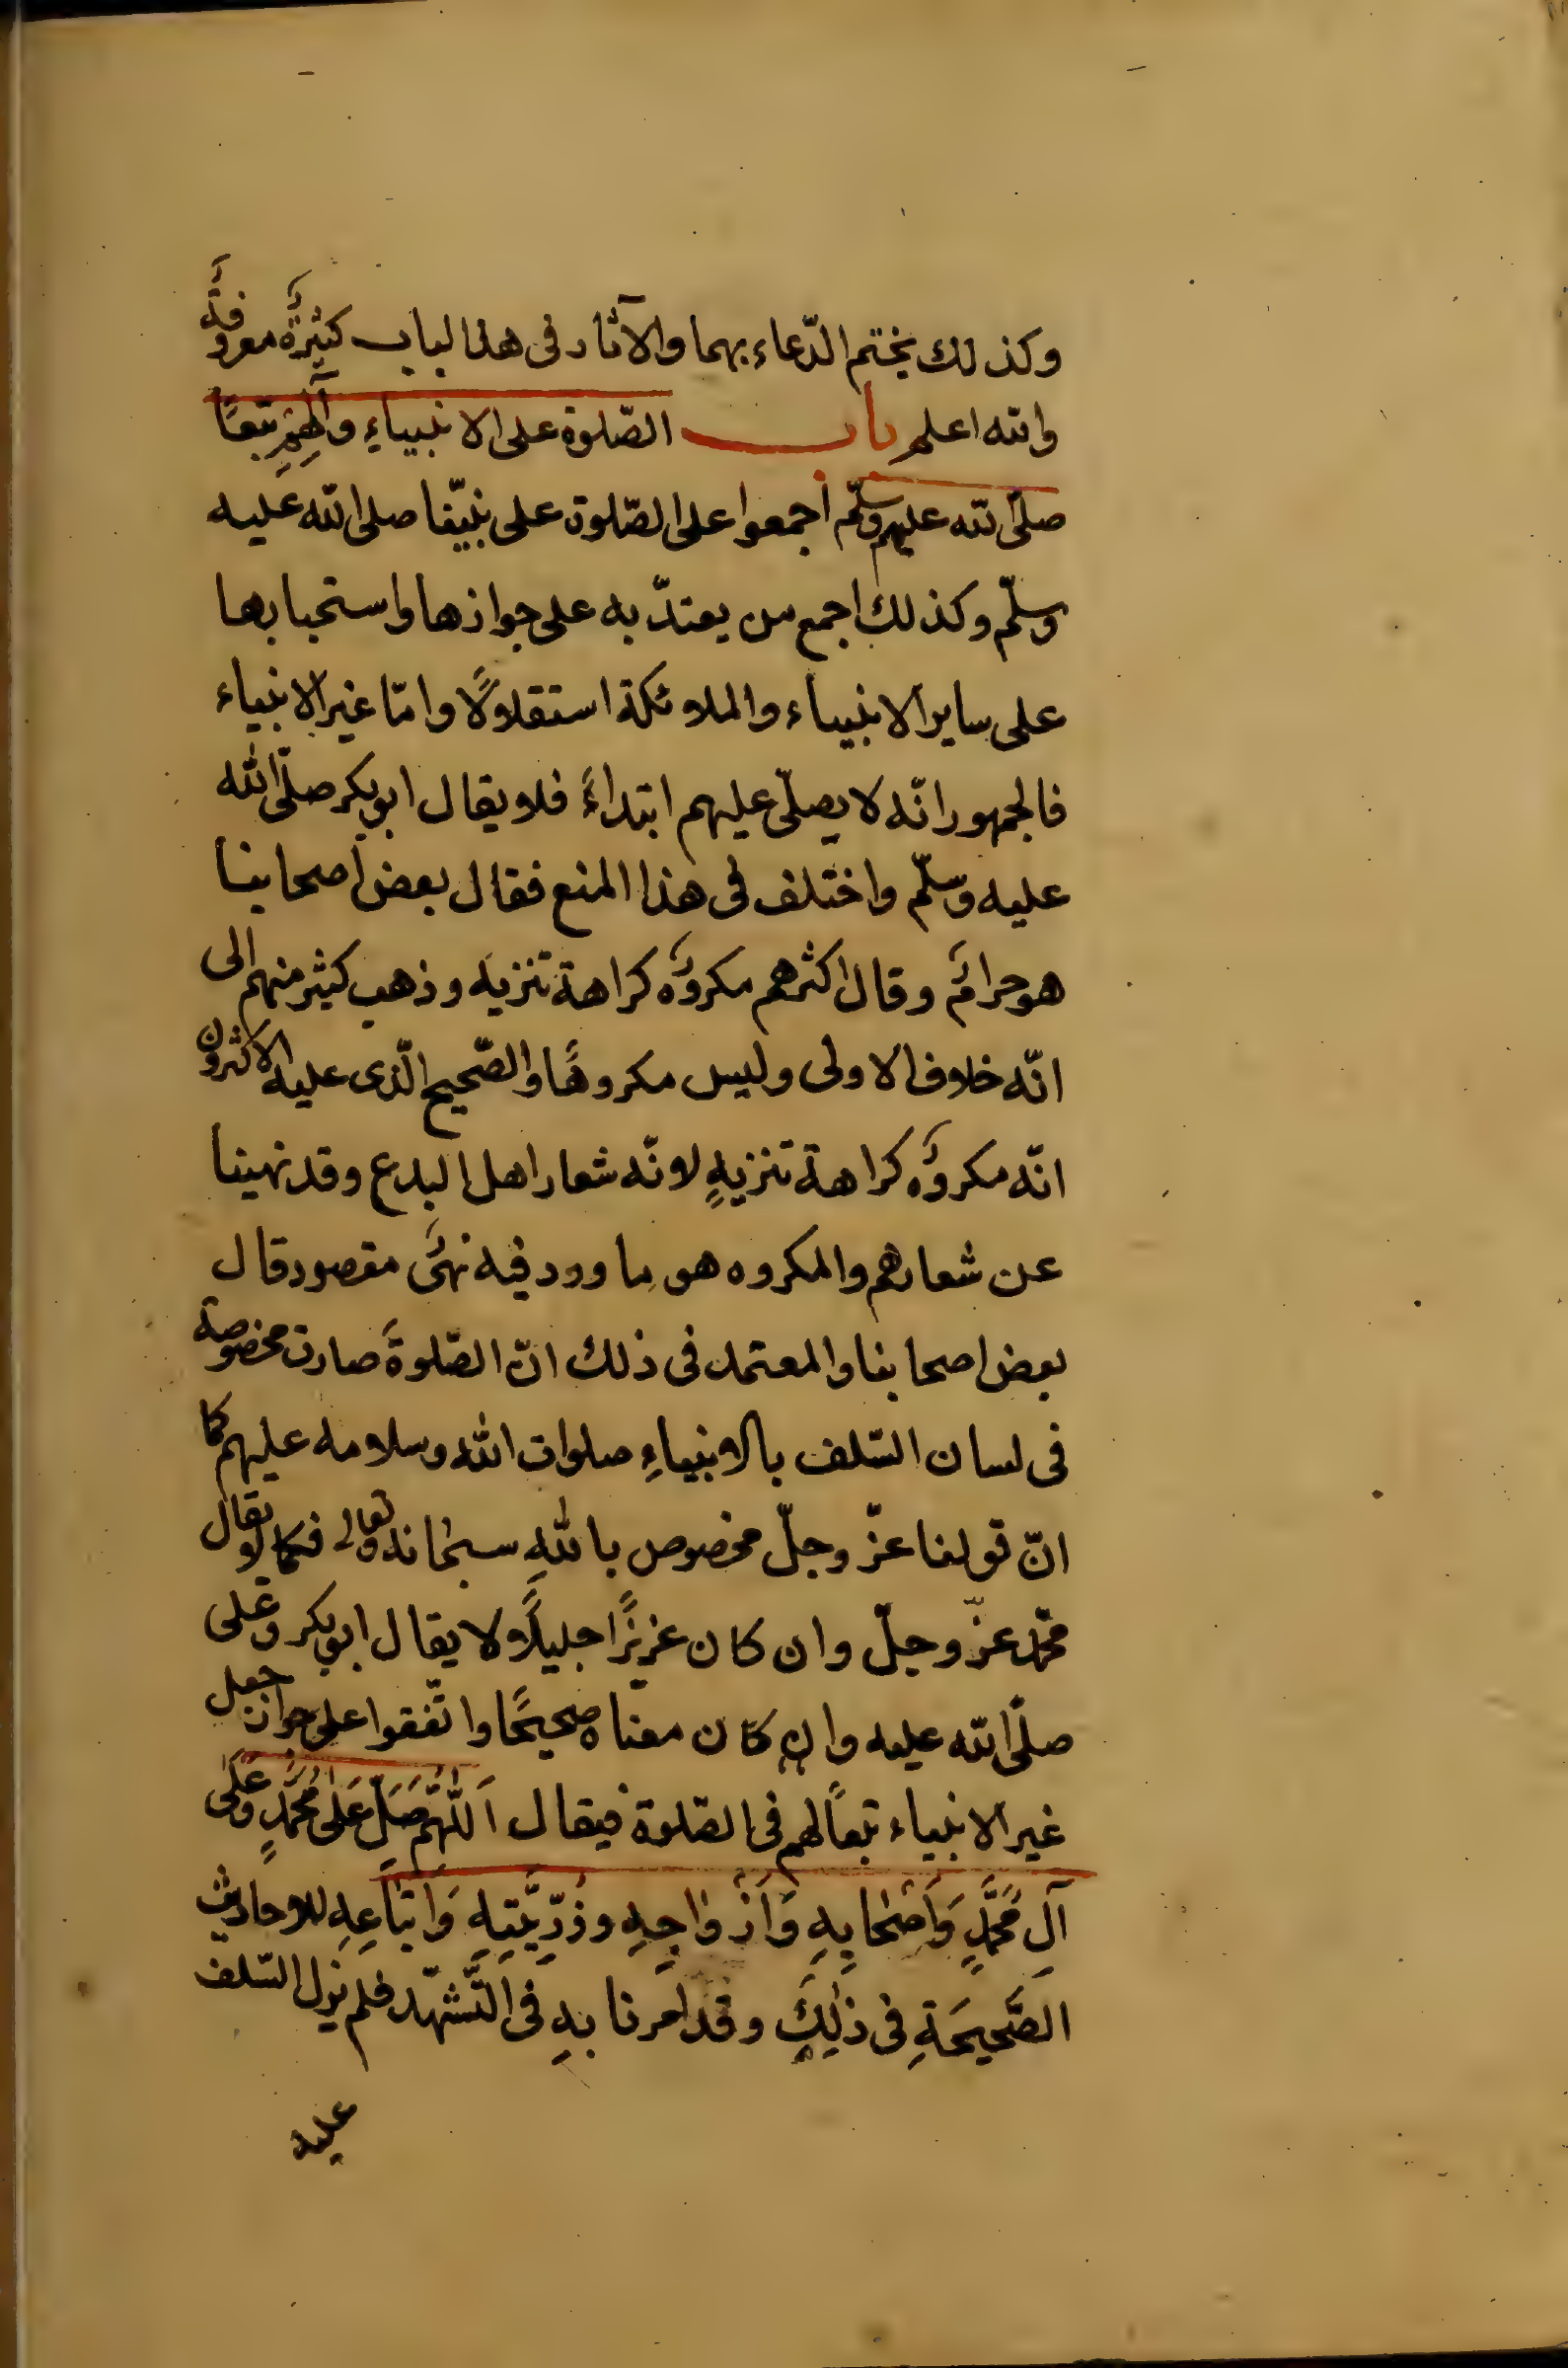 وكذلك يختم الدّعاء بهما والآثار فى هذا لباب كثيرةٌ معروفةٌ
والله اعلم باب الصّلوة على الانبياءِ وآلِهِمْ تبعًا
صلّى الله عليهم وسلّم اجمعوا على الصّلوة على نبيّنا صلى الله عليه
وسلّم وكذلك اجمع من يعتدّ به على جوازها واستحبابها
على ساير الانبياء والملائكة استقلالًا وامّا غير الانبياء
فالجمهور انّه لا يصلّى عليهم ابتداءً فلا يقال ابو بكر صلّى الله
عليه وسلّم واختلف فى هذا المنع فقال بعض اصحابنا
هو حرامٌ وقال اكثرهم مكروهٌ كراهة تنزيه وذهب كثير منهم الى
انّه خلاف الاولى وليس مكروهًا والصّحيح الّذى عليه الاكثرون
انّه مكروهٌ كراهة تنزيهٍ لانّه شعار اهل البدع وقد نهينا
عن شعارهم والمكروه هو ما ورد فيه نهىٌ مقصود قال
بعض اصحابنا والمعتمد فى ذلك انّ الصّلوةَ صارت مخصوصة
فى لسان السّلف بالانبياءِ صلوات الله وسلامه عليهم كما
انّ قولنا عزّ وجلّ مخصوص باللهِ سبحانه وتعالى فكما لا يقال
محمّد عزّ وجلّ وان كان عزيزًا جليلًا ولا يقال ابو بكر وعلى
صلّى الله عليه وان كان معناه صحيحًا واتّفقوا على جواز جعل
غير الانبياء تبعًا لهم فى الصّلوة فيقال اَللّٰهُمَّ صَلِّ عَلٰى مُحَمَّدٍ وَعَلٰى
آلِ مُحَمَّدٍ وَاَصْحَابِهِ وَاَزْوَاجِهِ وذُرِّيَّتِهِ وَاتْبَاعِهِ للاحاديث
الصَّحيحَةِ فى ذٰلِكَ وقد امرنا بهِ فى التَّشهّد فلم يزل السّلف
عليه